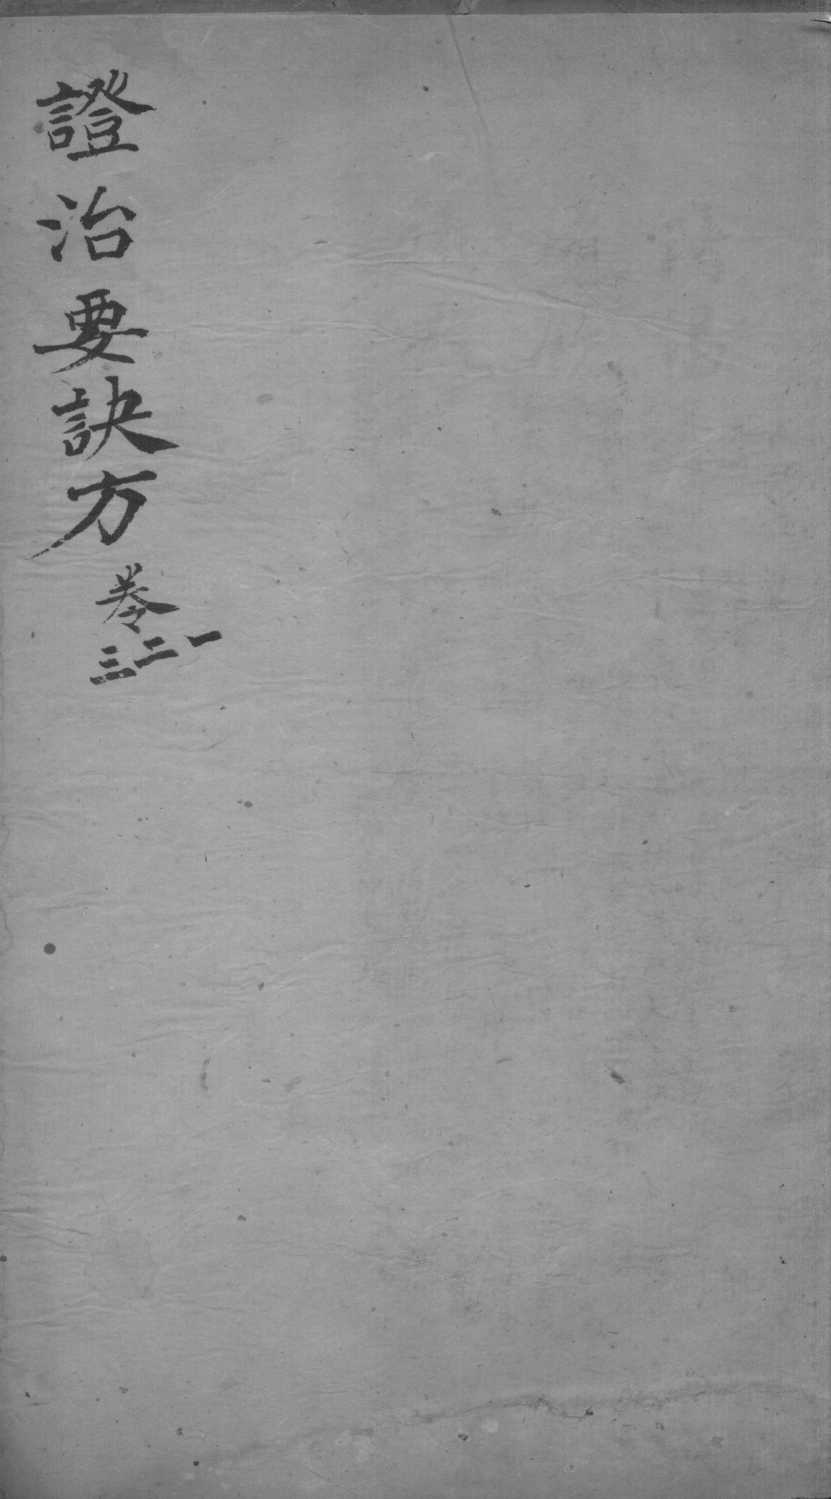 證治要訣方
卷
一
二
三